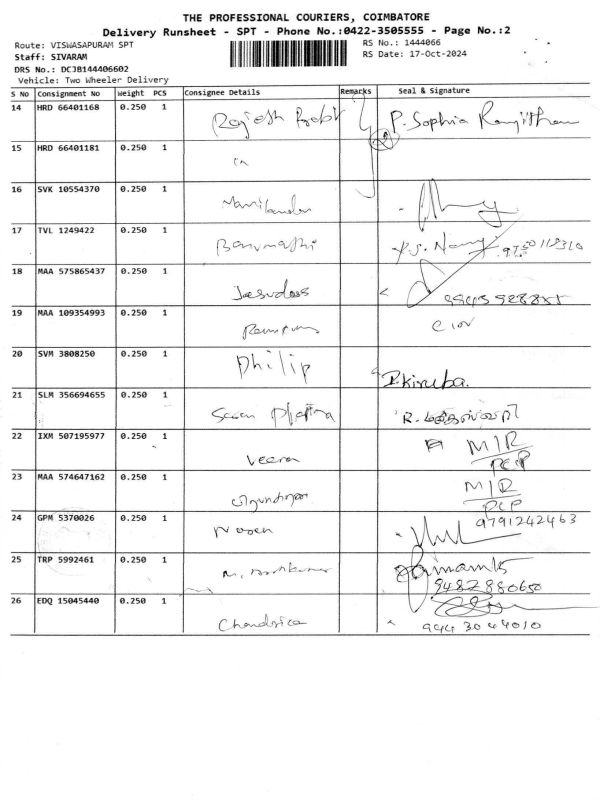 THE PROFESSIONAL COURIERS, COIMBATORE
Delivery Runsheet - SPT - Phone No.:0422-3505555 - Page No.:2
Route: VISWASAPURAM SPT
RS No.: 1444066
Staff: SIVARAM
RS Date: 17-Oct-2024
DRS No.: DCJB144406602
Vehicle: Two Wheeler Delivery
S No Consignment No Weight PCS Consignee Details Remarks Seal & Signature
14 HRD 66401168 0.250 1 Rajesh P. Sophia Ranjitham
15 HRD 66401181 0.250 1
16 SVK 10554370 0.250 1 Manikandan
17 TVL 1249422 0.250 1 Banumathi
18 MAA 575865437 0.250 1 Jesudoss
19 MAA 109354993 0.250 1
20 SVM 3808250 0.250 1 Philip P.Kiruba.
21 SLM 356694655 0.250 1
22 IXM 507195977 0.250 1 Veera M/R
PCP
23 MAA 574647162 0.250 1 M/R
PCP
24 GPM 5370026 0.250 1 9791242463
25 TRP 5992461 0.250 1
9487880650
26 EDQ 15045440 0.250 1 Chandrica 944 3044010